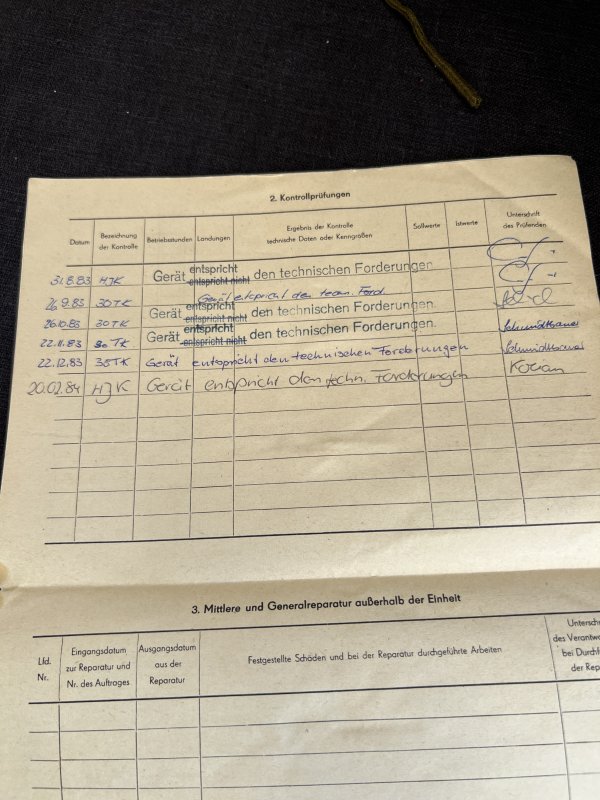 2. Kontrollprüfungen
Datum Bezeichnung der Kontrolle Betriebsstunden Landungen Ergebnis der Kontrolle technische Daten oder Kenngrößen Sollwerte Istwerte Unterschrift des Prüfenden
31.8.83 HJK Gerät entspricht entspricht nicht den technischen Forderungen
26.9.83 30TK Gerät entspricht den techn. Ford.
26.10.83 30TK Gerät entspricht entspricht nicht den technischen Forderungen.
22.11.83 30TK Gerät entspricht entspricht nicht den technischen Forderungen. Schmidtbauer
22.12.83 35TK Gerät entspricht den technischen Forderungen Schmidtbauer
20.02.84 HJK Gerät entspricht den techn. Forderungen Kocian
3. Mittlere und Generalreparatur außerhalb der Einheit
Lfd. Nr. Eingangsdatum zur Reparatur und Nr. des Auftrages Ausgangsdatum aus der Reparatur Festgestellte Schäden und bei der Reparatur durchgeführte Arbeiten Untersch des Verantwo bei Durchf der Rep